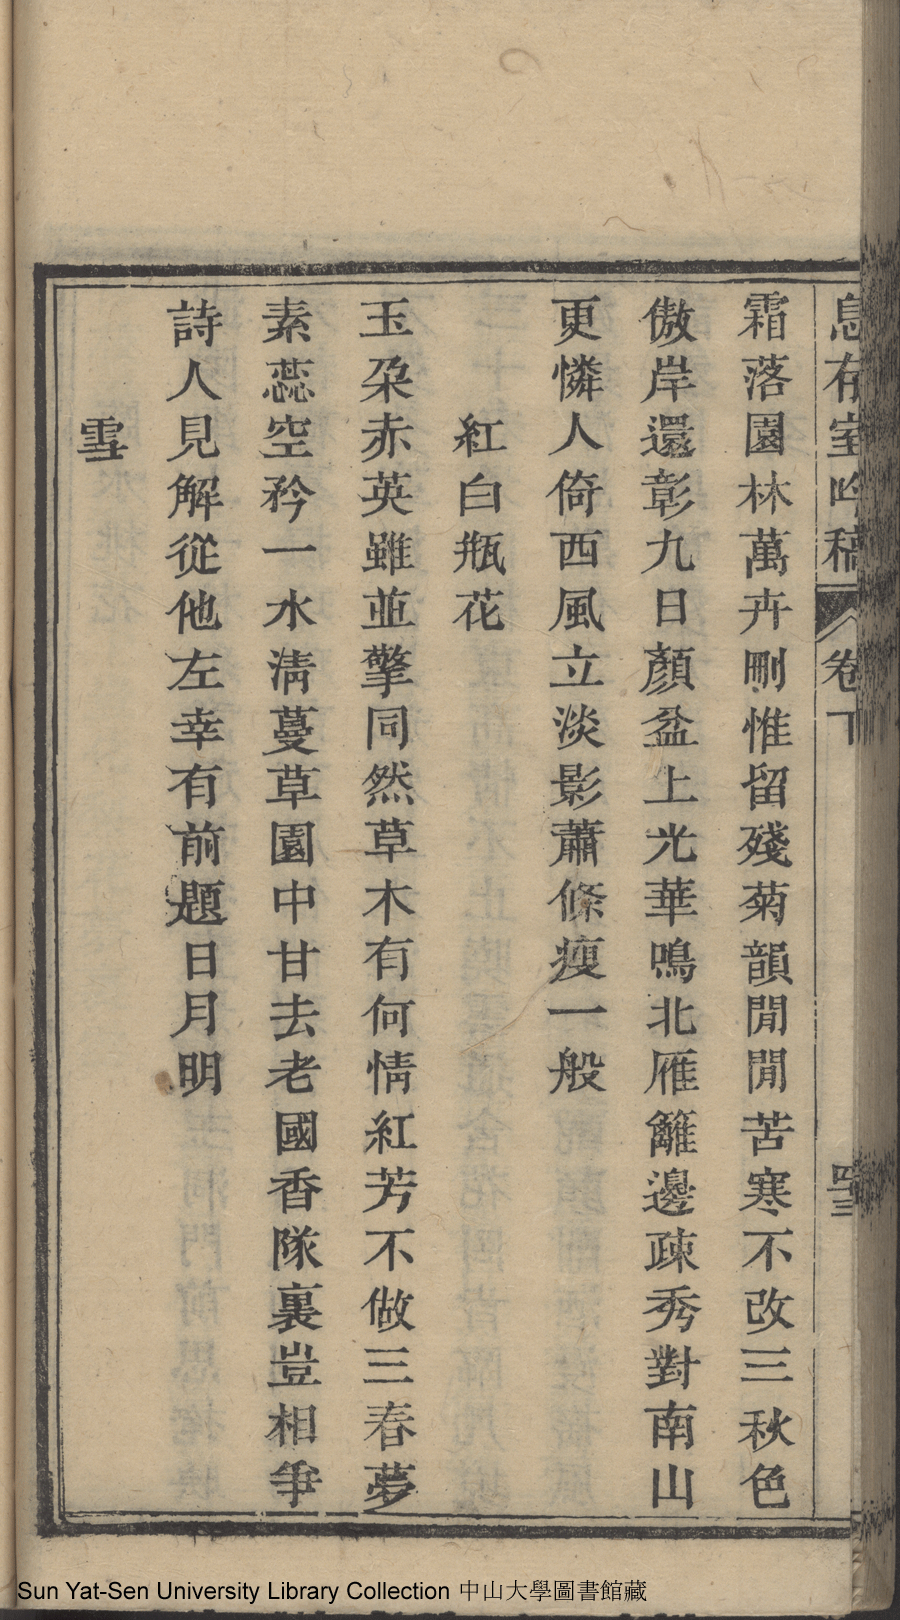 息存室吟稿 卷下 四三
霜落園林萬卉刪惟留殘菊韻閒閒苦寒不改三秋色
傲岸還彰九日顏盆上光華鳴北雁籬邊疎秀對南山
更憐人倚西風立淡影蕭條瘦一般
紅白瓶花
玉朶赤英雖並擎同然草木有何情紅芳不做三春夢
素蕊空矜一水淸蔓草園中甘去老國香隊裏豈相爭
詩人見解從他左幸有前題日月明
雪
Sun Yat-Sen University Library Collection 中山大學圖書館藏